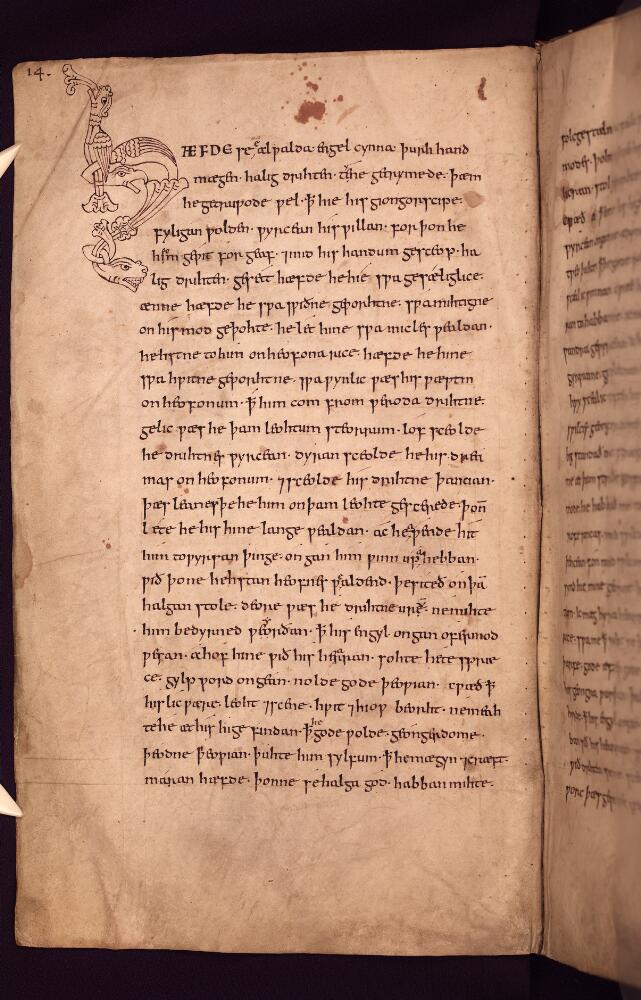 14.
HÆFDE se ealwalda· engel cynna· þurh hand
mægen· halig drihten· tene getrymede· þæm
he getruwode wel· ꝥ hie his giongorscipe·
fyligan wolden· wyrcean his willan· forþon he
him gewit forgeaf· ⁊ mid his handum gesceop· ha
lig drihten· gesett hæfde he hie· swa gesæliglice·
ænne hæfde he swa swiðne geworhtne· swa mihtigne
on his mod geþohte· he let hine swa micles wealdan·
hehstne to him on heofona rice· hæfde he hine
swa hwitne geworhtne· swa wynlic wæs his wæstm
on heofonum· ꝥ him com from weroda drihtne·
gelic wæs he þam leohtum steorrum· lof sceolde
he drihtnes wyrcean· dyran sceolde he his drea
mas on heofonum· ⁊ sceolde his drihtne þancian·
þæs leanes þe he him on þam leohte gescerede· þoñ
læte he his hine lange wealdan· ac he awende hit
him to wyrsan þinge· ongan him winn up ahebban·
wið þone hehstan heofnes wealdend· þe siteð on þā
halgan stole· deore wæs he drihtne ure· ne mihte
him bedyrned weorðan· ꝥ his engyl ongan ofermod
wesan· ahof hine wið his hearran· sohte hete spræ
ce· gylp word ongean· nolde gode þeowian· cwæð ꝥ
his lic wære· leoht ⁊ scene· hwit ⁊ hiow beorht· ne meah
te he æt his hige findan· ꝥ he gode wolde· geongerdome·
þeodne þeowian· þuhte him sylfum· ꝥ he mægyn ⁊ cræft·
maran hæfde· þonne se halga god· habban mihte·